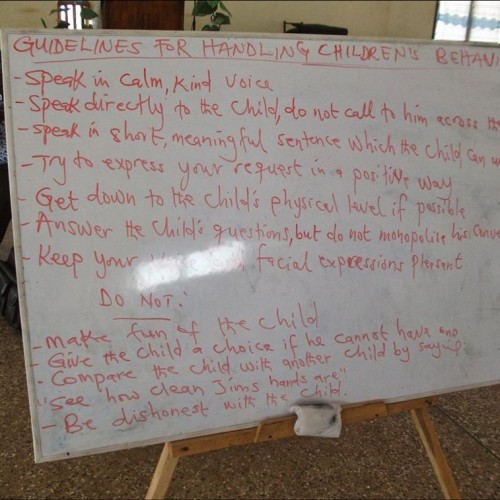 GUIDELINES FOR HANDLING CHILDREN'S BEHAVI
- Speak in calm, kind voice
- Speak directly to the child, do not call to him across the
- speak in short, meaningful sentence which the child can un
- Try to express your request in a positive way
- Get down to the child's physical level if possible
- Answer the child's questions, but do not monopolise his conve
- Keep your facial expressions plesent
DO NOT:
- make fun of the child
- Give the child a choice if he cannot have one
- Compare the child with another child by saying
"see how clean Jims hands are"
- Be dishonest with the child.